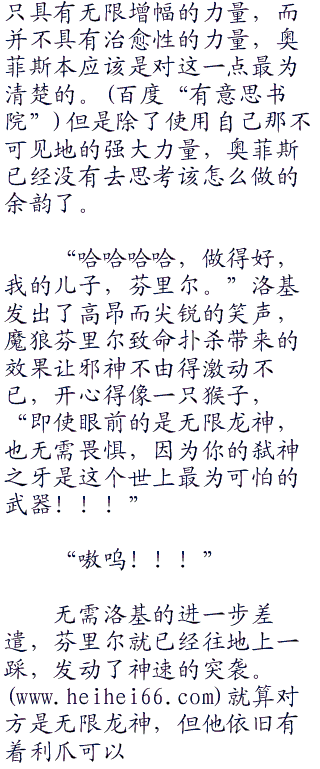 只具有无限增幅的力量，而
并不具有治愈性的力量，奥
菲斯本应该是对这一点最为
清楚的。(百度“有意思书
院”)但是除了使用自己那不
可见地的强大力量，奥菲斯
已经没有去思考该怎么做的
余韵了。
“哈哈哈哈，做得好，
我的儿子，芬里尔。”洛基
发出了高昂而尖锐的笑声，
魔狼芬里尔致命扑杀带来的
效果让邪神不由得激动不
已，开心得像一只猴子，
“即使眼前的是无限龙神，
也无需畏惧，因为你的弑神
之牙是这个世上最为可怕的
武器！！！”
“嗷呜！！！”
无需洛基的进一步差
遣，芬里尔就已经往地上一
踩，发动了神速的突袭。
(www.heihei66.com)就算对
方是无限龙神，但他依旧有
着利爪可以